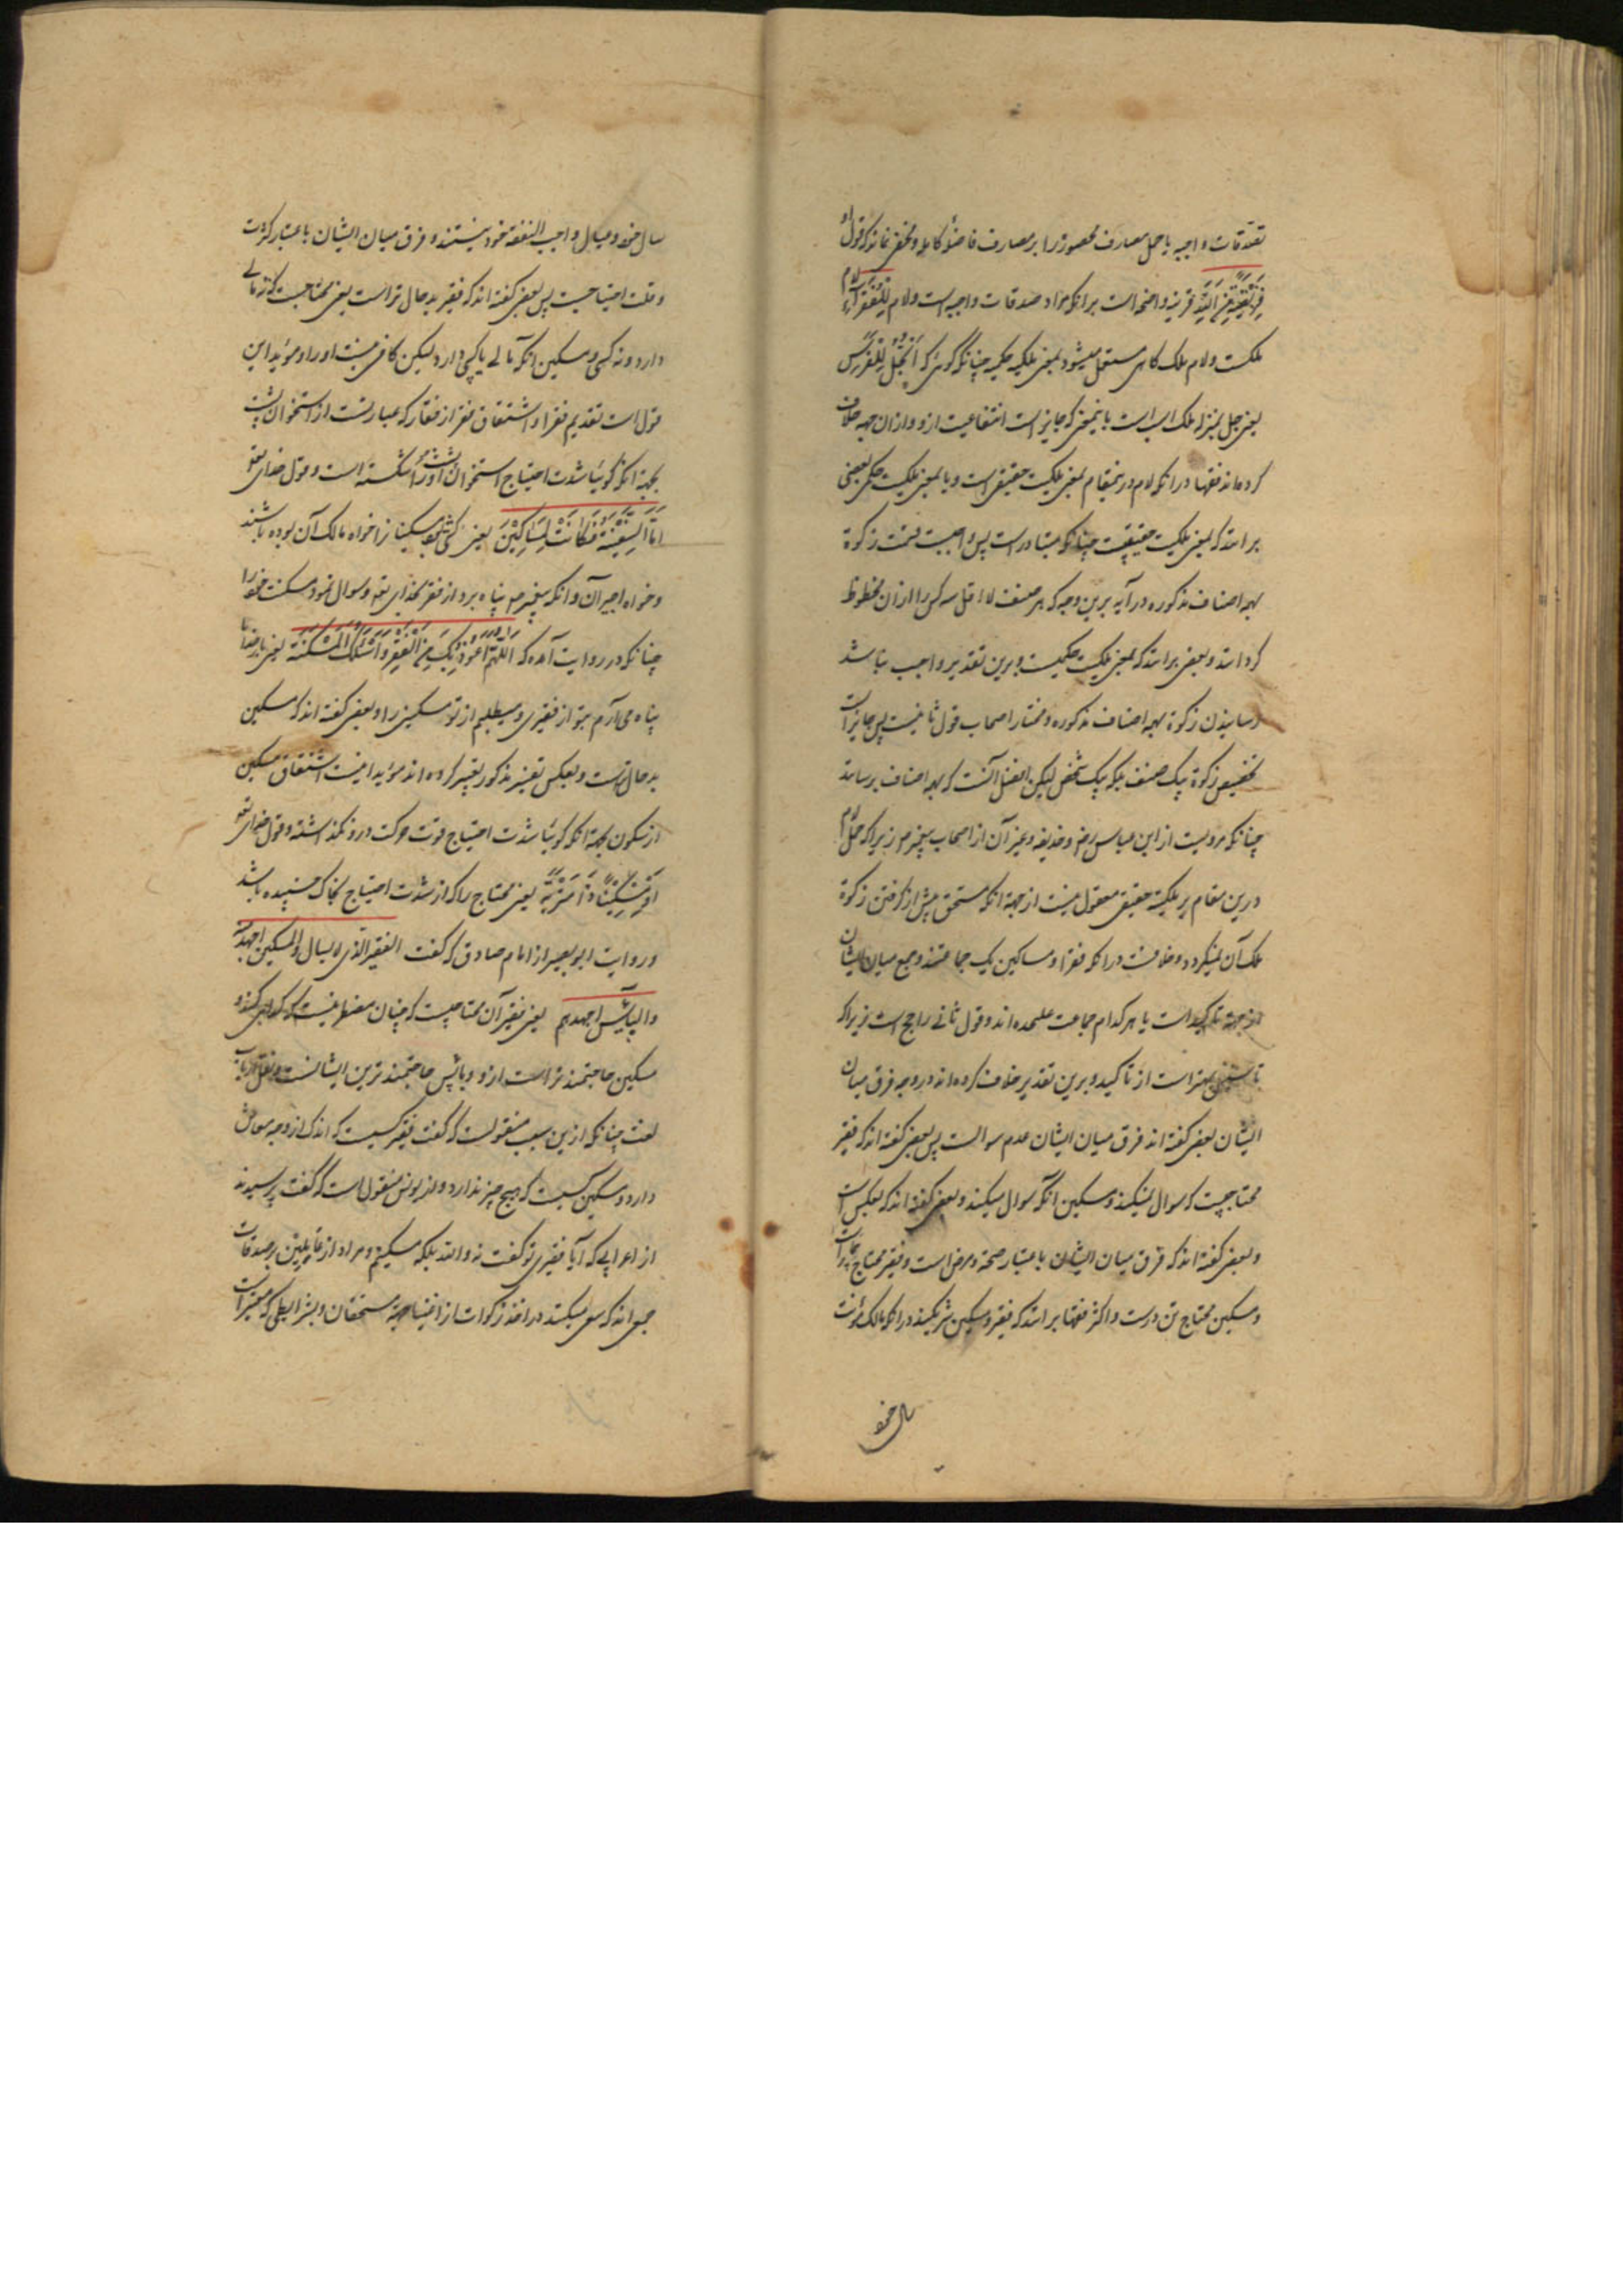 تصدقات واجبه یا حمل مصارف محصوره را بر مصارف فاضله کامله و مخفی نماند که قول او
فریضة من الله قرینه واضحه است بر انکه مراد صدقات واجبه است و لام للفقراء لام
ملکست و لام ملک کاهی مستعمل میشود بمعنی ملکیه حکمیه چنانکه کوئی که الجل للفرس
یعنی جل بمنزله ملک اسب است باینمعنی که جایز است انتفاعیت ازو و ازان جهه خلاف
کرده‌اند فقها در انکه لام درینمقام بمعنی ملکیت حقیقی است و یا بمعنی ملکیت حکمی بعضی
برانند که بمعنی ملکیت حقیقیست چنانکه متبادر است پس واجبست قسمت زکوة
بهمه اصناف مذکوره در آیه برین وجه که هر صنف لا اقل سه کس را ازان محظوظ
کردانند و بعضی برانند که بمعنی ملکیت حکمیست و برین تقدیر واجب نباشد
رسانیدن زکوة بهمه اصناف مذکوره و مختار اصحاب قول ثانیست پس جایز است
تخصیص زکوة بیک صنف بلکه بیک شخص لیکن افضل آنست که بهمه اصناف برسانند
چنانکه مرویست از ابن عباس رض و حذیفه و غیر آن از اصحاب پیغمبر ص زیرا که حمل لام
درین مقام بر ملکیة حقیقی معقول نیست از جهة انکه مستحق پیش از کرفتن زکوة
ملک آن نمیکردد و خلافست در انکه فقرا و مساکین یک جماعتند و جمع میان ایشان
از جهة تاکید است یا هر کدام جماعت علیحده اند و قول ثانی راجح است زیرا که
تاسیس بهتر است از تاکید و برین تقدیر خلاف کرده اند در وجه فرق میان
ایشان بعضی کفته اند فرق میان ایشان عدم سوالست پس بعضی کفته اند که فقیر
محتاجیست که سوال نمیکند و مسکین انکه سوال میکند و بعضی کفته اند که بعکس است
و بعضی کفته اند که فرق میان ایشان باعتبار صحة و مرض است و فقیر محتاج بیمار است
و مسکین محتاج تن درست و اکثر فقها برانند که فقیر و مسکین شریکند در انکه مالک مؤنت
سال خود
سال خود و عیال واجب النفقه خود نیستند و فرق میان ایشان باعتبار کثرت
و قلت احتیاجست پس بعضی کفته اند که فقیر بدحال تر است یعنی محتاجیست که نه مالی
دارد و نه کسبی و مسکین انکه مالی یا کسبی دارد لیکن کافی نیست او را و موید این
قول است تقدیم فقرا و اشتقاق فقر از فقار که عبارتست از استخوان پشت
بجهة انکه کوئیا شدت احتیاج استخوان پشت او را شکسته است و قول خدای تعالی
اما السفینة فکانت لمساکین یعنی کشتی بود مسکینان را خواه مالک آن بوده باشند
و خواه اجیر آن و انکه پیغمبر ص پناه برد از فقر بخدای تعالی و سوال نمود مسکنت خود را
چنانکه در روایت آمده که اللهم اعوذ بک من الفقر و اسئلک المسکنة یعنی بار خدایا
پناه می‌آرم بتو از فقیری و میطلبم از تو مسکینی را و بعضی کفته اند که مسکین
بدحال ترست و بعکس تفسیر مذکور تفسیر کرده اند موید اینست اشتقاق مسکین
از سکون بجهة انکه کوئیا شدت احتیاج قوت حرکت درو نکذاشته و قول خدای تعالی
او مسکینا ذا متربة یعنی محتاج را که از شدت احتیاج بخاک چسپیده باشد
و روایت ابو بصیر از امام صادق که کفت الفقیر الذی لا یسال و المسکین اجهد منه
و البایس اجهدهم یعنی فقیر آن محتاجیست که چنان مضطر نیست که کدایی کند و
مسکین حاجتمند تر است ازو و بائس حاجتمند ترین ایشانست و نقل ارباب
لغت چنانکه از ابن سبب منقولست که کفت فقیر کسیست که اندک از وجه معاش
دارد و مسکین کسیست که هیچ چیز ندارد و از یونس منقول است که کفت پرسیدند
از اعرابی که آیا فقیری تو کفت نه والله بلکه مسکینم و مراد از عاملین بر صدقات
جمعی اند که سعی میکنند در اخذ زکوات از اغنیا جهة مستحقان و بشرایطی که معتبر است